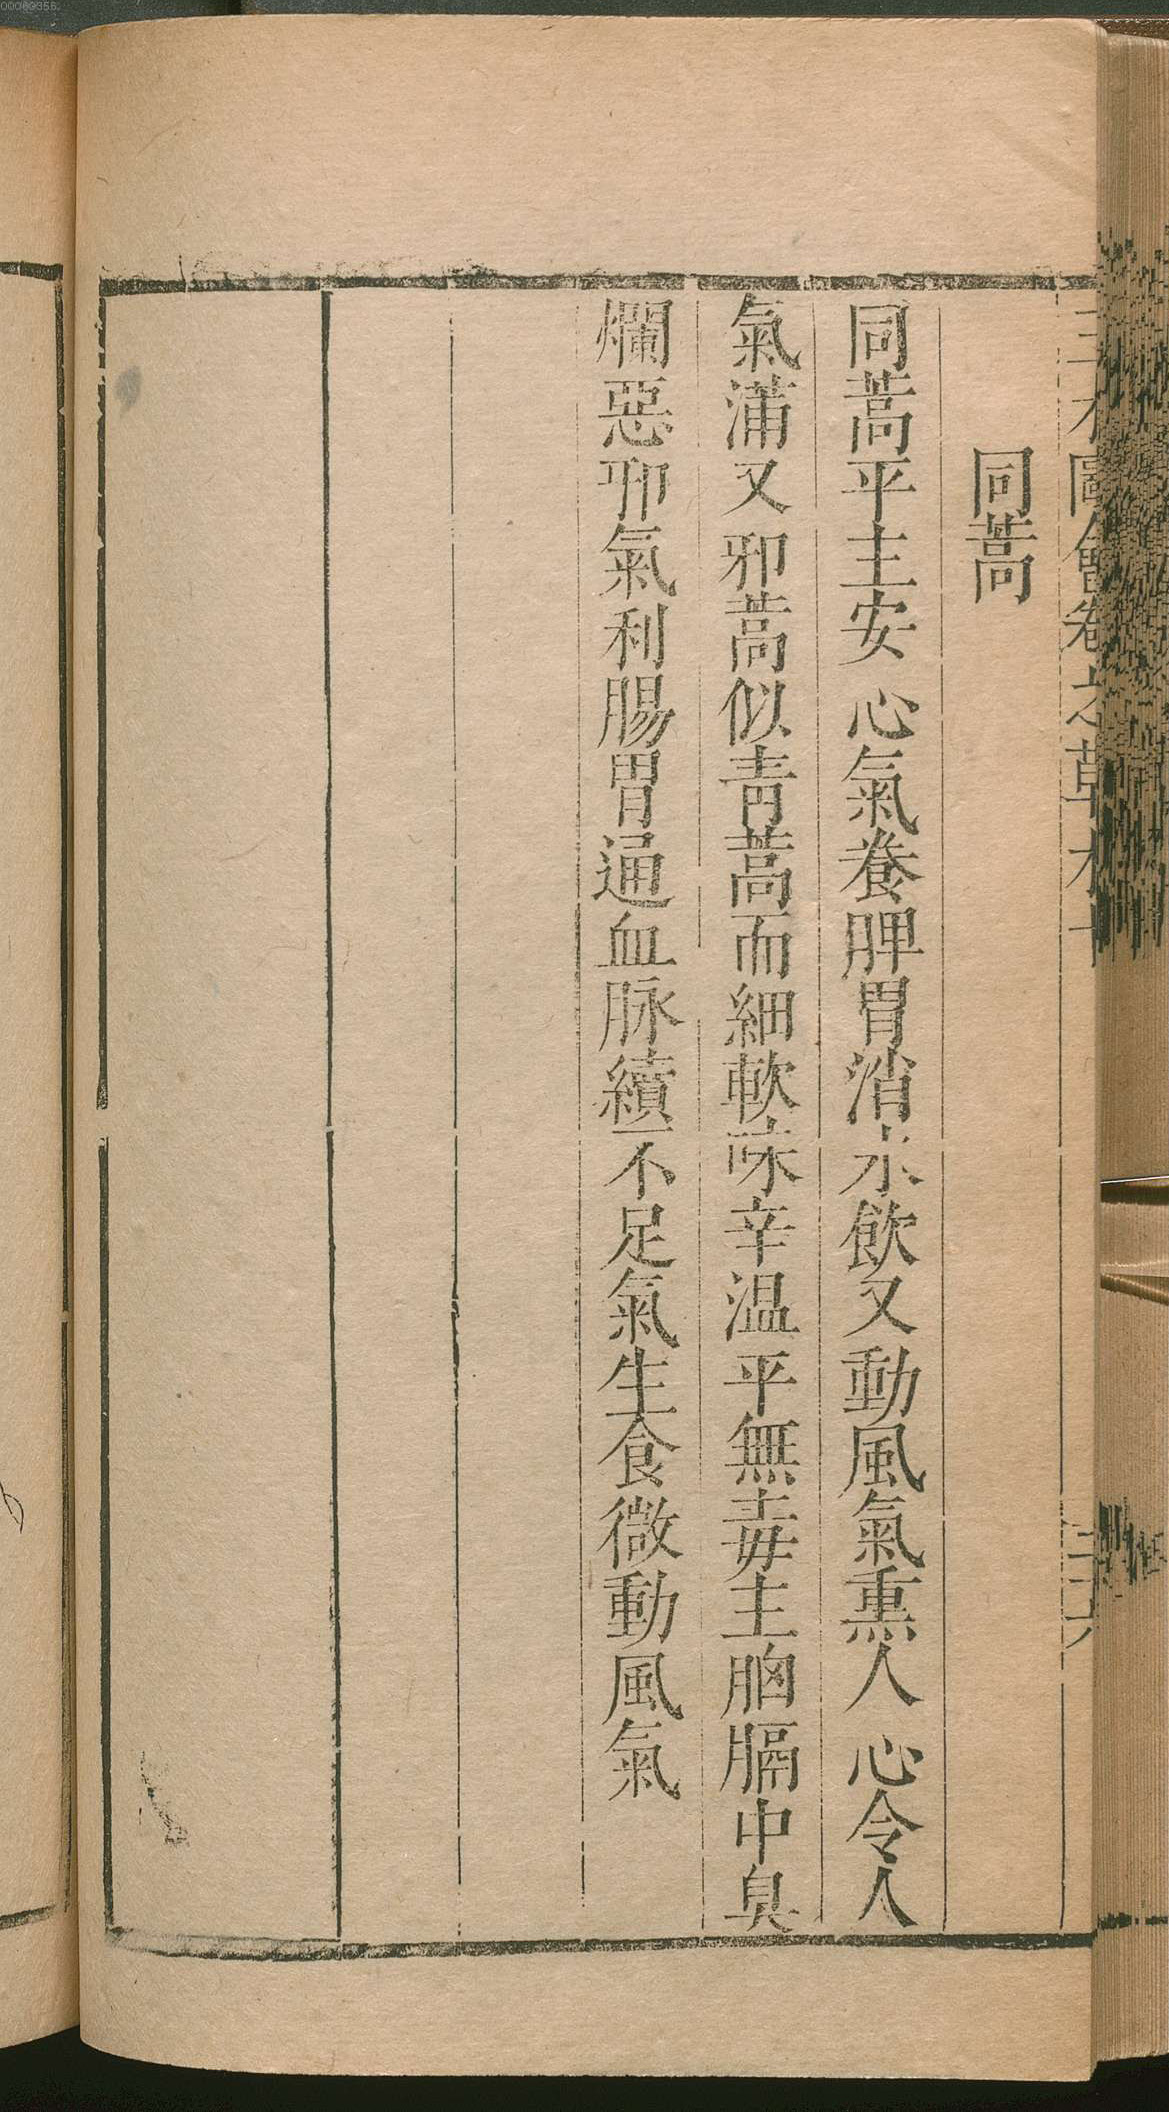 00060356
圖會卷之草木十
同蒿
同蒿平主安心氣養脾胃消水飲又動風氣熏人心令人
氣滿又邪蒿似靑蒿而細軟味辛温平無毒主胸膈中臭
爛惡邪氣利腸胃通血脉續不足氣生食微動風氣